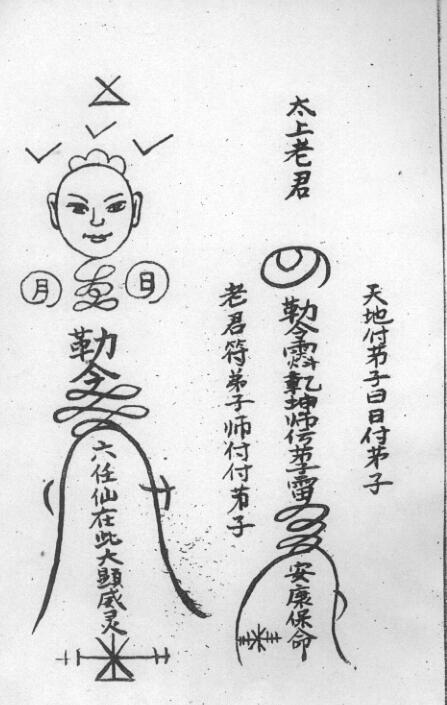 天地付苐子曰日付苐子
太上老君
勒令乾坤师传苐子雷
安康保命
老君符弟子师付付苐子
日
月
勒令
六任仙在此大顯威灵